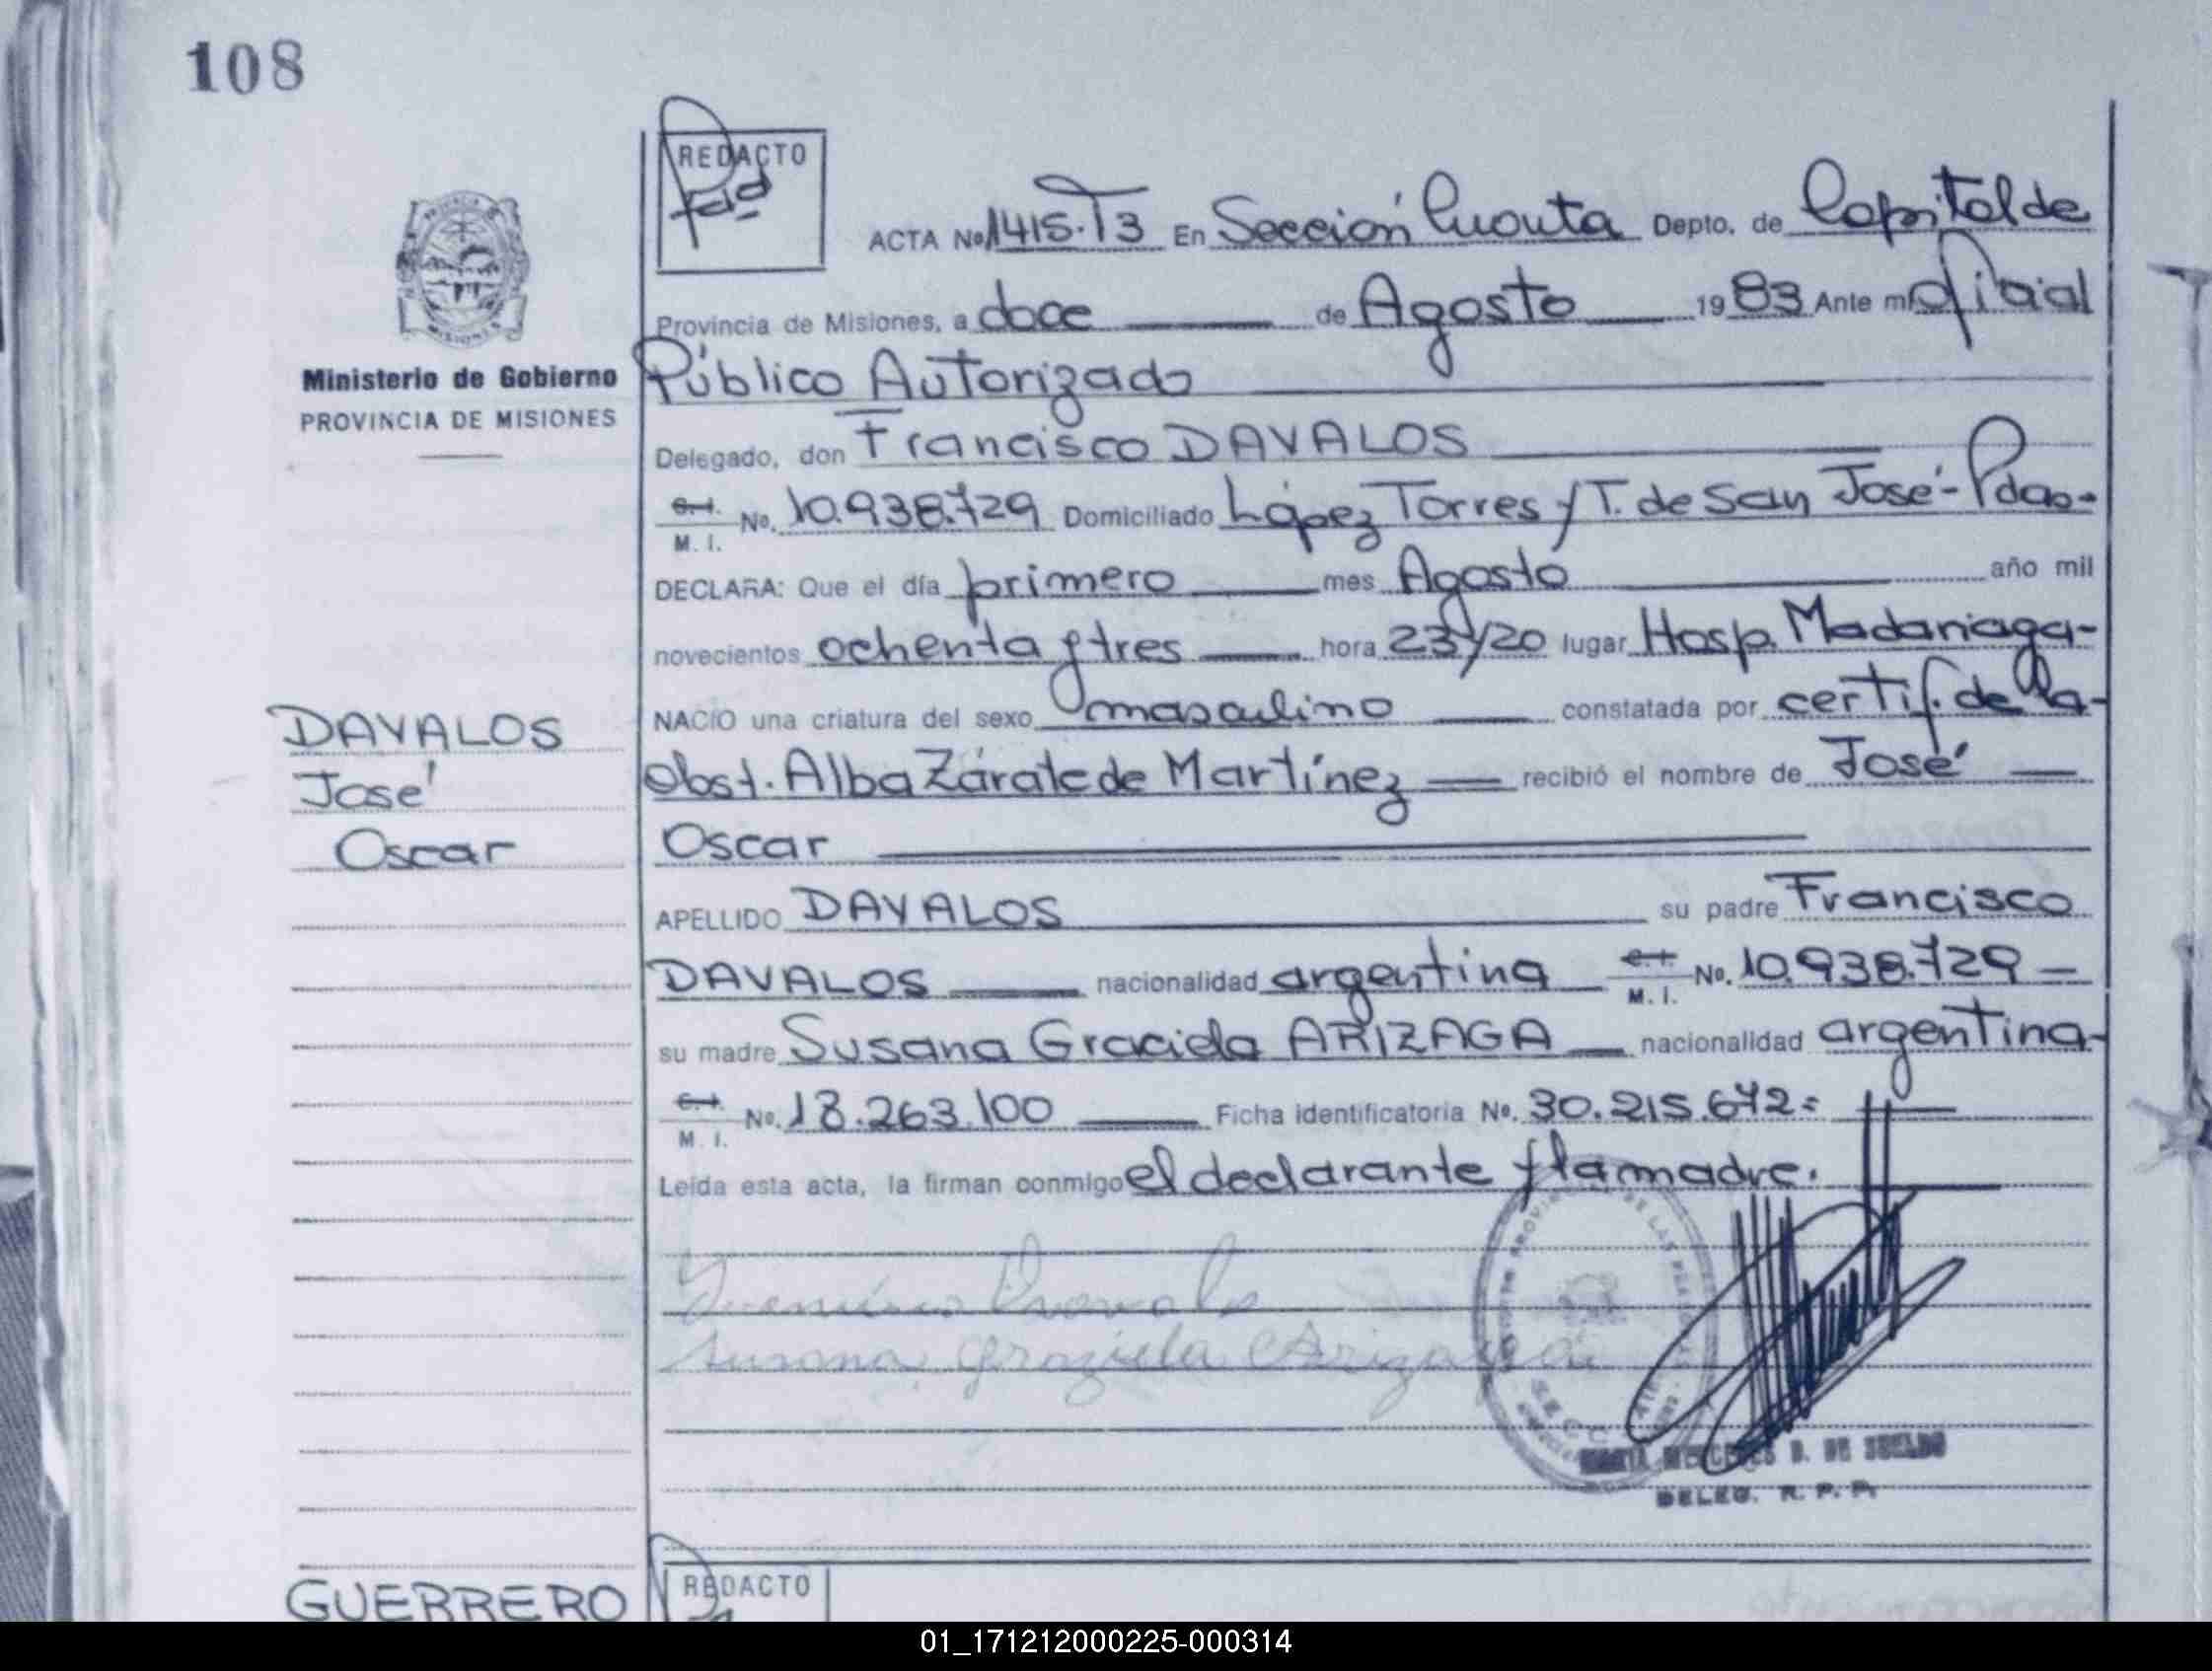 108
REDACTO
ACTA Nº 1415.T3 En Sección Cuarta Depto. de Capital de
Provincia de Misiones, a doce de Agosto 1983 Ante mí Oficial
Ministerio de Gobierno
PROVINCIA DE MISIONES
Público Autorizado
Delegado, don Francisco DAVALOS
C.I. M. I. No. 10.938.729 Domiciliado López Torres y T. de San José - Pdas-
DECLARA: Que el día primero mes Agosto año mil
novecientos ochenta y tres hora 23y20 lugar Hosp. Madariaga-
NACIO una criatura del sexo masculino constatada por certif. de la-
DAVALOS
José
Oscar
Obst. Alba Zárate de Martínez recibió el nombre de José
Oscar
APELLIDO DAVALOS su padre Francisco
DAVALOS nacionalidad argentina C.I. M. I. No. 10.938.729
su madre Susana Graciela ARIZAGA nacionalidad argentina-
C.I. M. I. No. 18.263.100 Ficha identificatoria No. 30.215.642=
Leida esta acta, la firman conmigo el declarante y la madre.
Susana Graziela Arizaga
DE SUELDO
DELEG. R. P. P.
GUERRERO
REDACTO
01_171212000225-000314